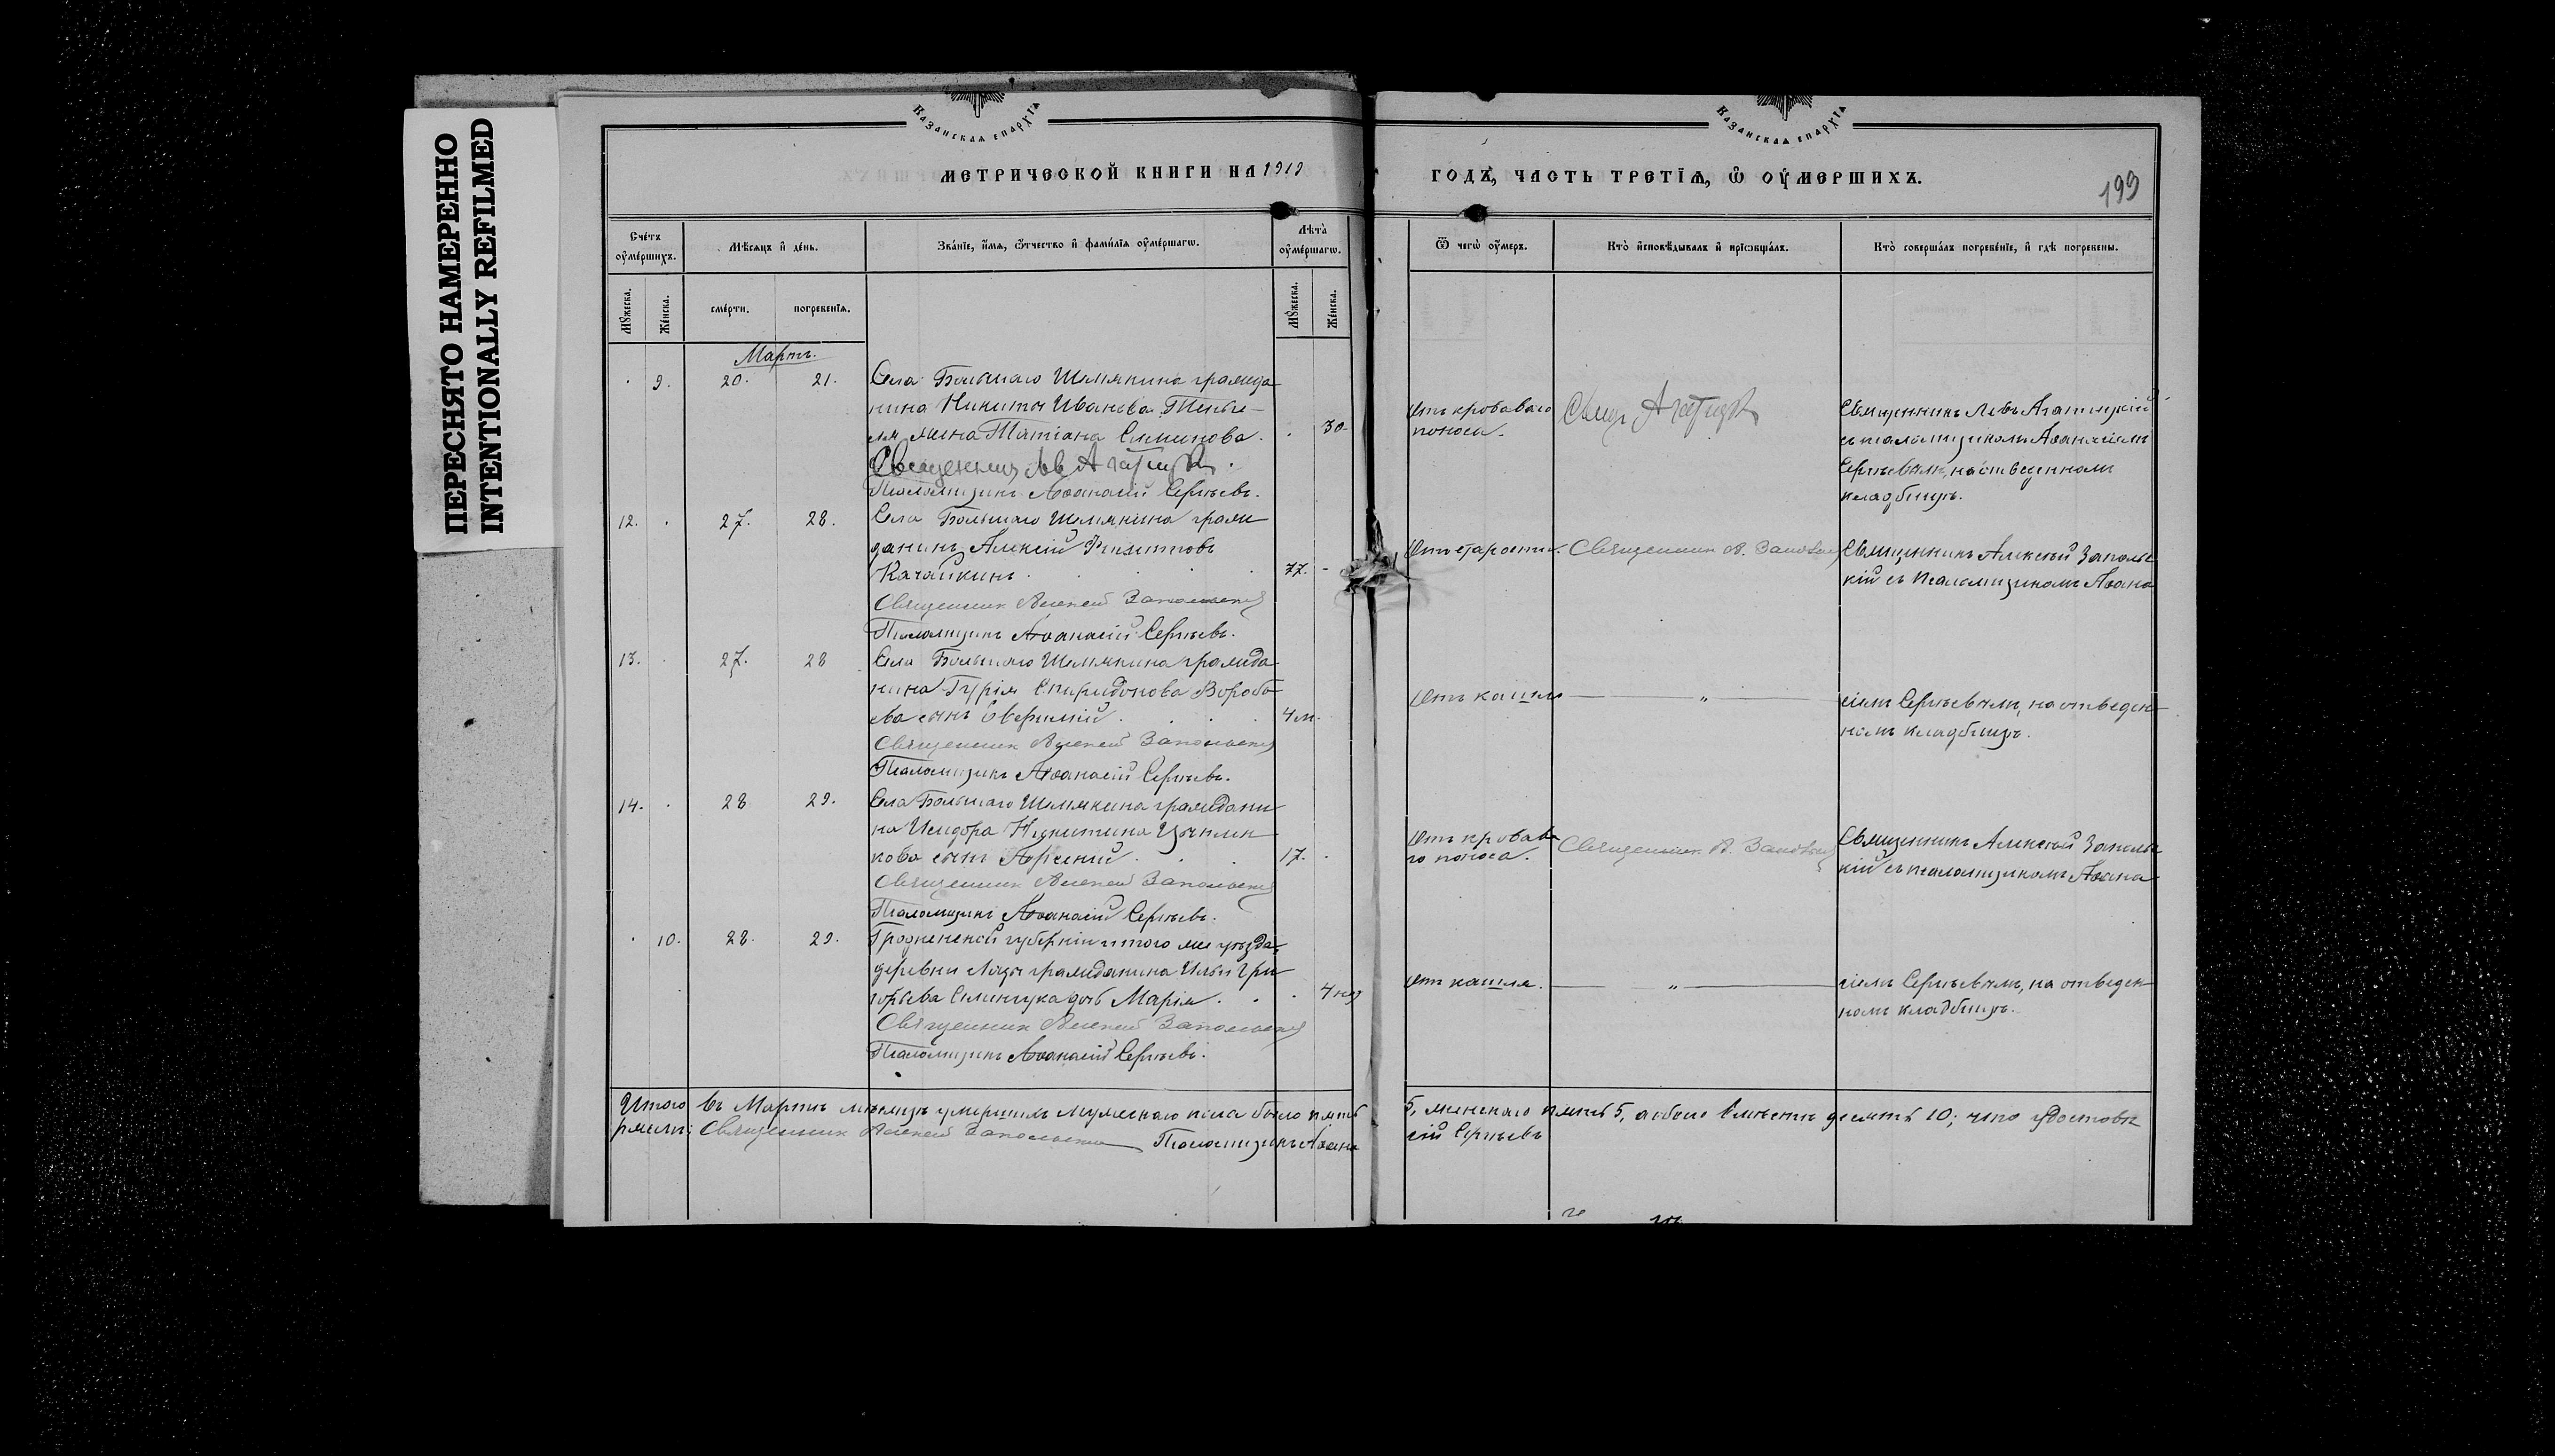 ПЕРЕСНЯТО НАМЕРЕННО
INTENTIONALLY REFILMED
Казанская епархїѧ
Казанская епархїѧ
МЕТРИЧЕСКОЙ КНИГИ НА 1919
ГОДЪ, ЧАСТЬ ТРЕТЇѦ, Ѽ ОУМЕРШИХЪ.
199
Счетъ оумершихъ.
Мѣсяцъ и день.
Званїе, имя, ѿчество и фамилїя оумершагѡ.
Лѣта оумершагѡ.
Ѿ чегѡ оумеръ.
Кто исповѣдывалъ и прїѡбщалъ.
Кто совершалъ погребенїе, и гдѣ погребены.
Мужеска.
Женска.
смерти.
погребенїѧ.
Мужеска.
Женска.
Мартъ.
9. 20. 21. Села Большаго Шемякина гражда-
нина Никиты Иванова
жена Татіана Симинова. 30.
Священникъ Лев
Псаломщикъ Аѳанасій Сергѣевъ.
Отъ кроваваго
поноса.
Свящ
Священникъ Левъ
съ псаломщикомъ Аѳанасіемъ
Сергѣевымъ, на отведенномъ
кладбищѣ.
12. 27. 28. Села Большаго Шемякина граж-
данинъ Алексій
Качайкинъ 77.
Священник Алексей Запольский
Псаломщикъ Аѳанасій Сергѣевъ.
Отъ старости.
Священник А. Запольский
Священникъ Алексѣй Заполь-
кій съ псаломщикомъ Аѳана-
13. 27. 28 Села Большаго Шемякина гражда-
нина Гурія Спиридонова Воробь-
ева сынъ Евѳимій 4 м.
Священник Алексей Запольский
Псаломщикъ Аѳанасій Сергѣевъ.
Отъ кашля
"
сіемъ Сергѣевымъ, на отведен-
номъ кладбищѣ.
14. 28 29. Села Большаго Шемякина граждани-
на Исидора Никитина Цыплен-
кова сынъ Арсеній 17.
Священник Алексей Запольский
Псаломщикъ Аѳанасій Сергѣевъ.
Отъ кровава-
го поноса.
Священник А. Запольский
Священникъ Алексѣй Заполь-
кій съ псаломщикомъ Аѳана-
10. 28. 29. Гродненской губерніи и того же уѣзда,
деревни гражданина Ильи Гри-
горьева дочь Марія. 4 нед
Священник Алексей Запольский
Псаломщикъ Аѳанасій Сергѣевъ.
Отъ кашля.
"
сіемъ Сергѣевымъ, на отведен-
номъ кладбищѣ.
Итого въ Мартѣ мѣсяцѣ умершихъ мужескаго пола было пять
5, женскаго пять 5, а обоего вмѣстѣ десять 10; что удостовѣ-
ряемъ: Священник Алексей Запольский Псаломщикъ Аѳана-
сій Сергѣевъ